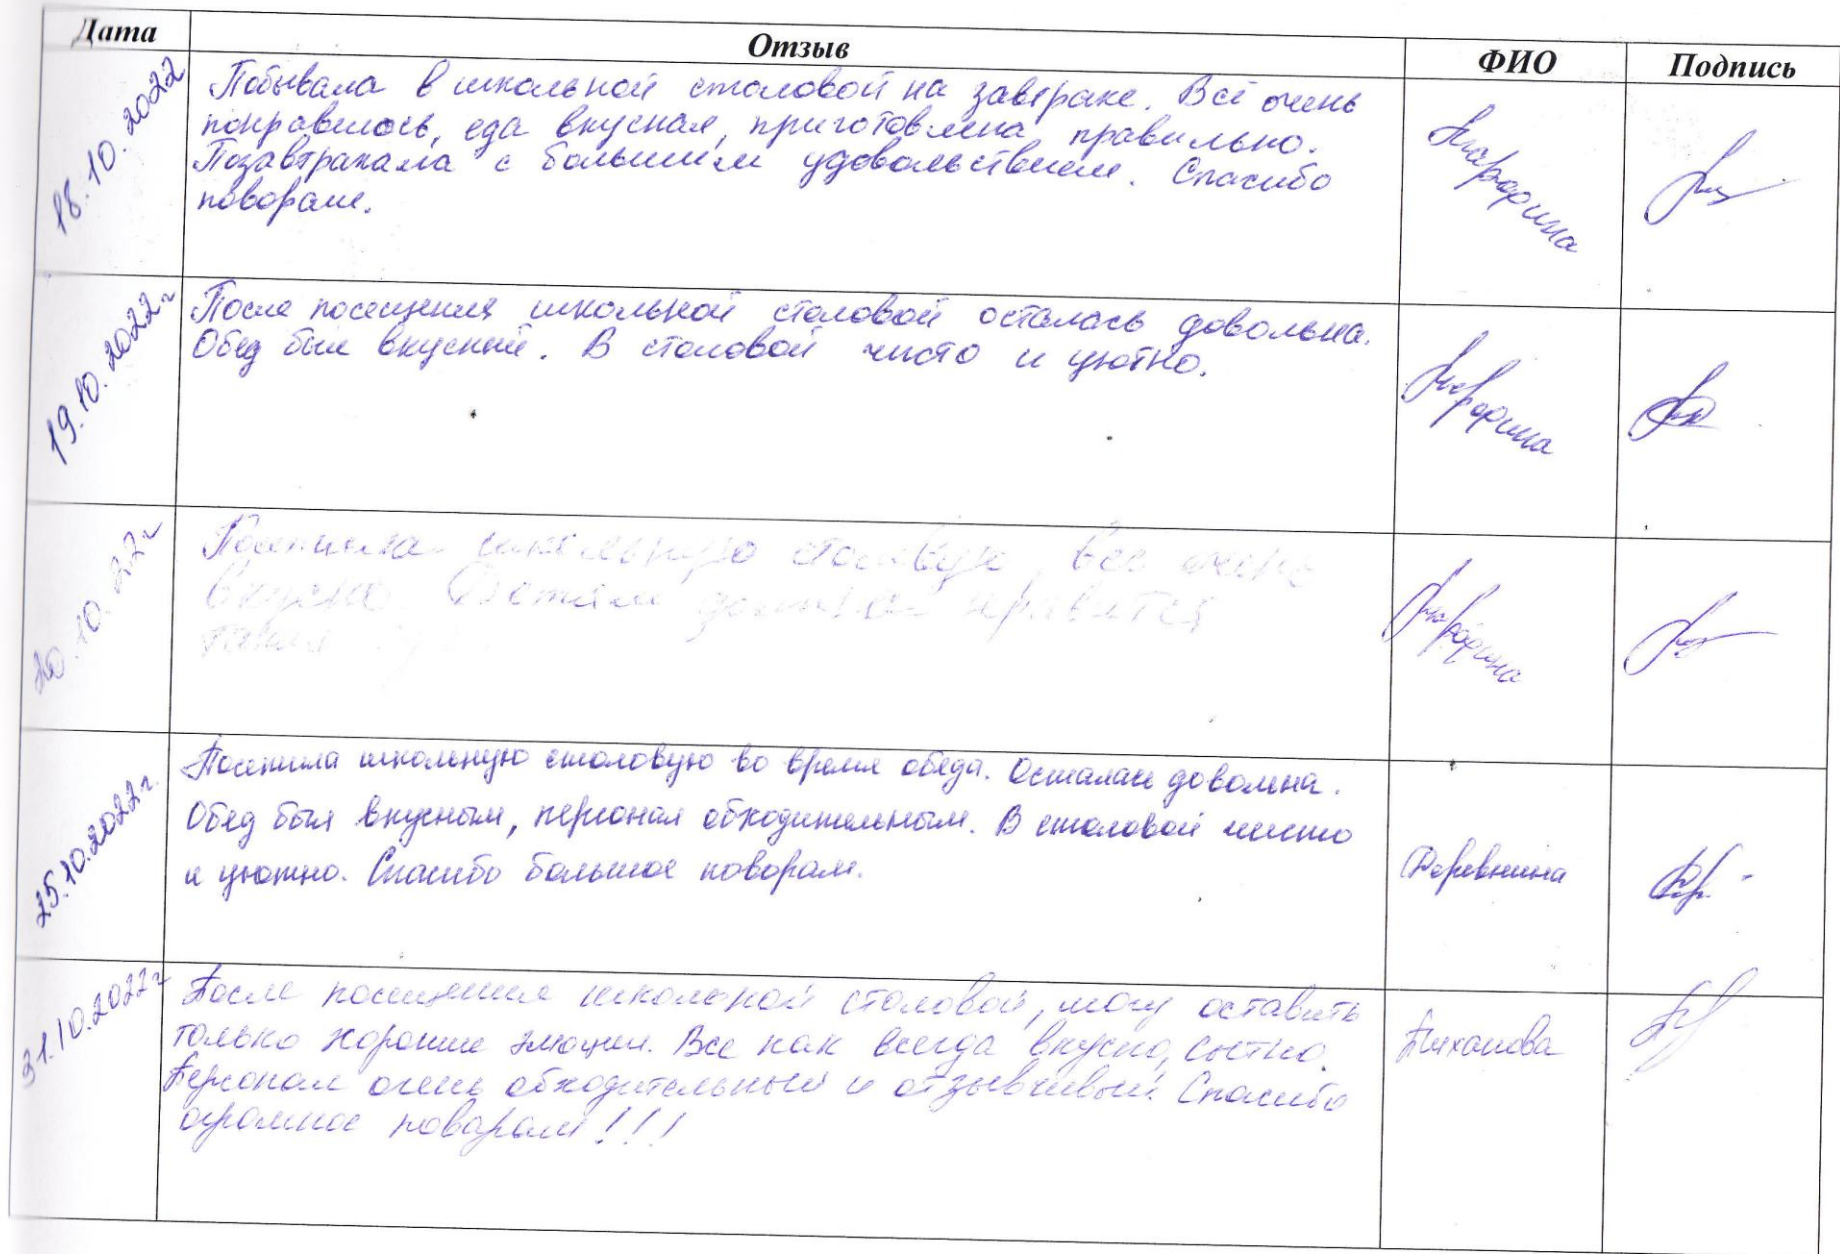 Дата Отзыв ФИО Подпись
18.10.2022
Побывала в школьной столовой на завтраке. Всё очень
понравилось, еда вкусная, приготовлена правильно.
Позавтракала с большим удовольствием. Спасибо
поворам.
19.10.2022г
После посещения школьной столовой осталась довольна.
Обед был вкусный. В столовой чисто и уютно.
20.10.22г
Посетила школьную столовую, все очень
вкусно. Детям должно нравится
25.10.2022г.
Посетила школьную столовую во время обеда. Осталась довольна.
Обед был вкусным, персонал обходительным. В столовой чисто
и уютно. Спасибо большое поворам.
Деревнина
31.10.2022г
После посещения школьной столовой, могу оставить
только хорошие эмоции. Все как всегда вкусно, сытно.
Персонал очень обходительный и отзывчивый. Спасибо
огромное поварам!!!